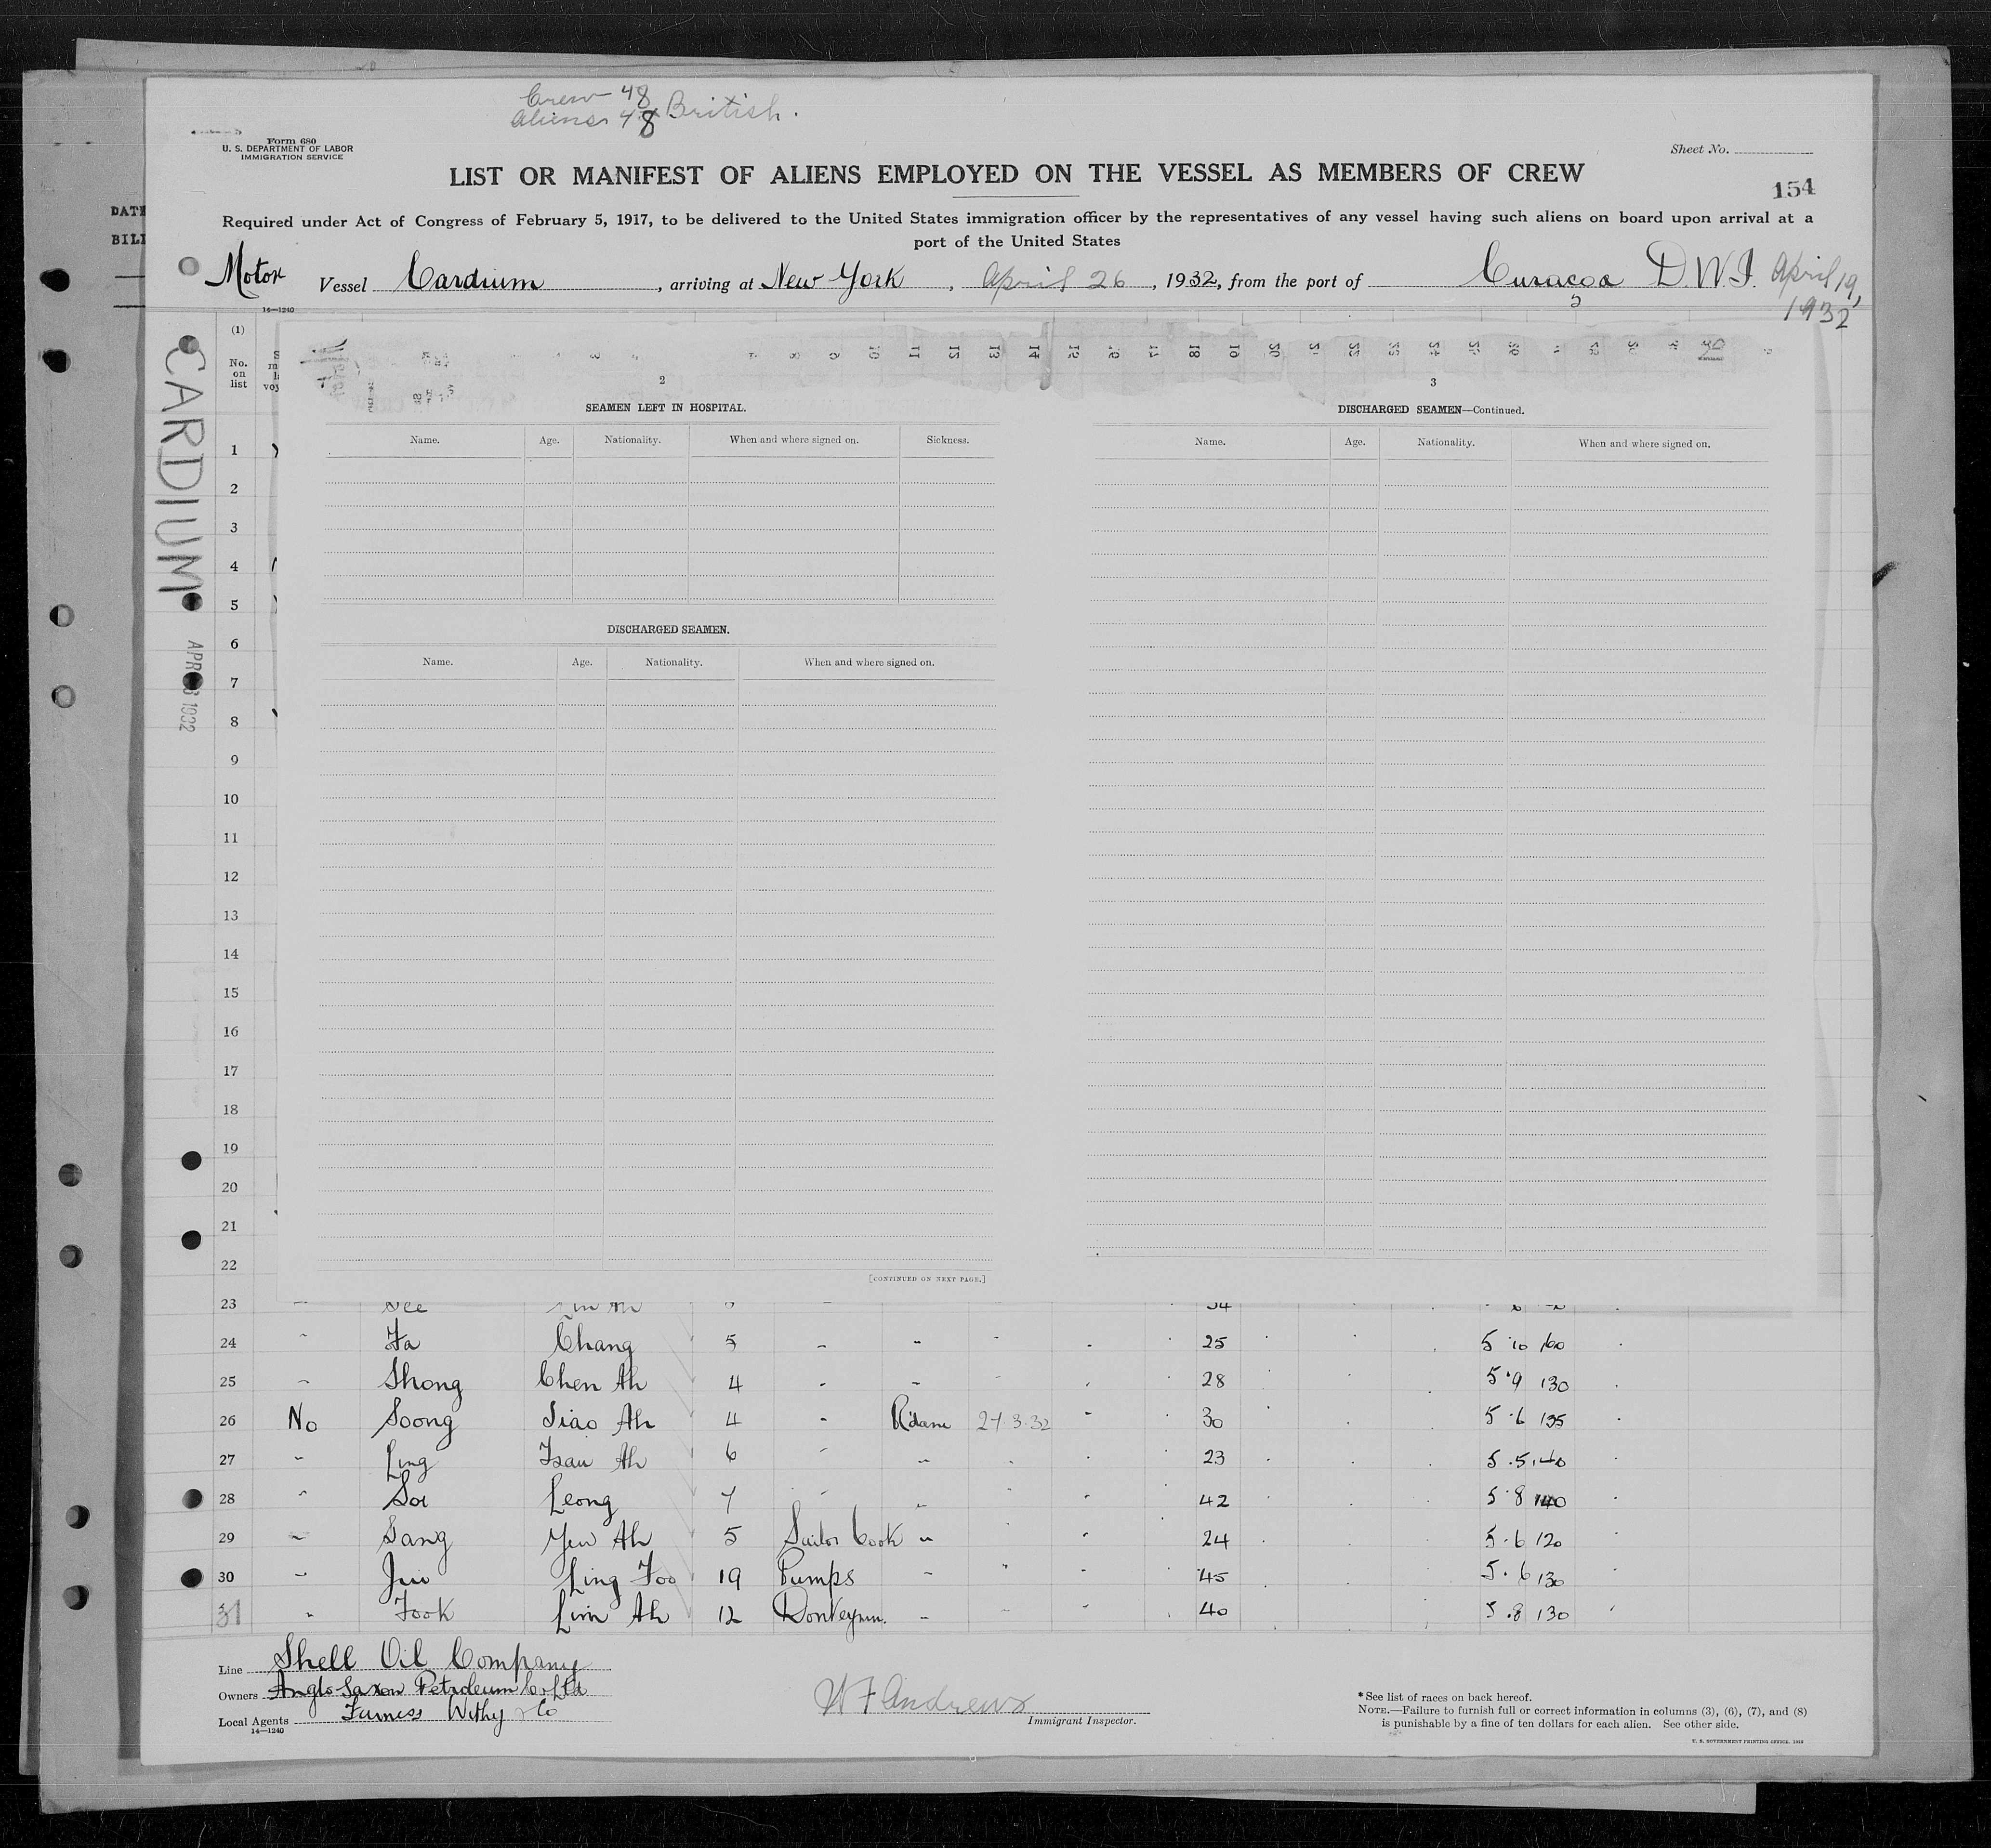 Crew 48
Aliens 48 British.
Form 680
U. S. DEPARTMENT OF LABOR
IMMIGRATION SERVICE
Sheet No.
LIST OR MANIFEST OF ALIENS EMPLOYED ON THE VESSEL AS MEMBERS OF CREW
154
Required under Act of Congress of February 5, 1917, to be delivered to the United States immigration officer by the representatives of any vessel having such aliens on board upon arrival at a
port of the United States
DATE
BILL
Motor Vessel Cardium, arriving at New York, April 26, 1932, from the port of Curacoa D.W.I. April 19, 1932
14—1240
(1)
No. on list
CARDIUM
1932
2
SEAMEN LEFT IN HOSPITAL.
Name. Age. Nationality. When and where signed on. Sickness.
DISCHARGED SEAMEN.
Name. Age. Nationality. When and where signed on.
[CONTINUED ON NEXT PAGE.]
3
DISCHARGED SEAMEN—Continued.
Name. Age. Nationality. When and where signed on.
1
2
3
4
5
6
7
8
9
10
11
12
13
14
15
16
17
18
19
20
21
22
23 See 34
24 " Fa Chang 5 " " " 25 5 10 160
25 " Shong Chen Ah 4 " " " 28 5 9 130
26 No Soong Siao Ah 4 " R'dam 27.3.32 " 30 5 6 135
27 " Ling Tsau Ah 6 " " " 23 5 5 140
28 " Soi Leong 7 " " " 42 5 8 140
29 " Sang Yew Ah 5 Sailor Cook " " 24 5 6 120
30 " Ling Foo 19 Pumps " " 45 5 6 130
31 " Fook Lim Ah 12 Donkeymn. " " 40 5 8 130
Line Shell Oil Company
Owners Anglo Saxon Petroleum Co Ltd
Local Agents Furness Withy & Co
14—1240
W F Andrews
Immigrant Inspector.
* See list of races on back hereof.
NOTE.—Failure to furnish full or correct information in columns (3), (6), (7), and (8)
is punishable by a fine of ten dollars for each alien. See other side.